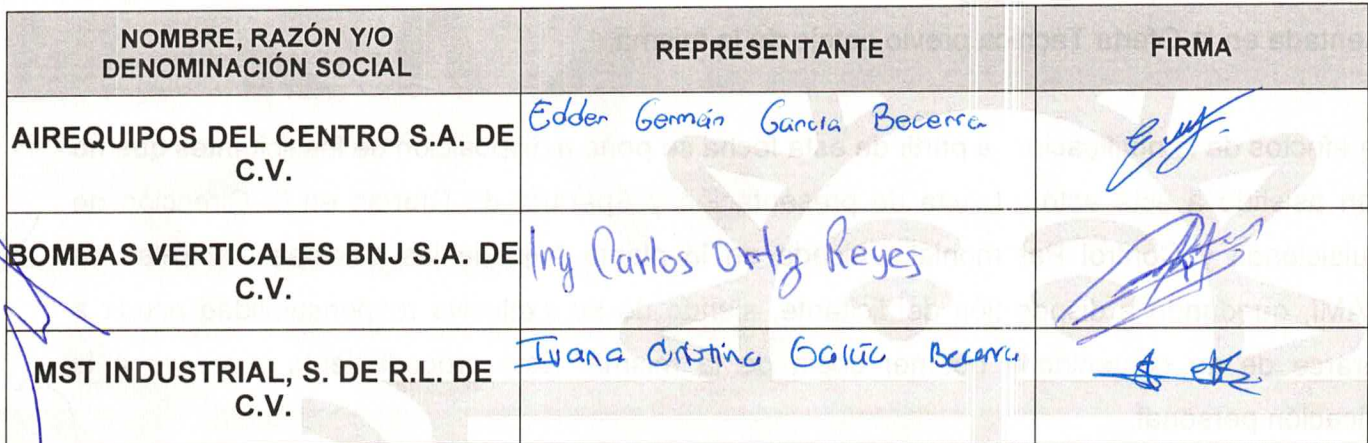 NOMBRE, RAZÓN Y/O
DENOMINACIÓN SOCIAL
REPRESENTANTE
FIRMA
AIREQUIPOS DEL CENTRO S.A. DE
C.V.
Edder Germán García Becerra
BOMBAS VERTICALES BNJ S.A. DE
C.V.
Ing Carlos Ortiz Reyes
MST INDUSTRIAL, S. DE R.L. DE
C.V.
Ivana Cristina Becerra